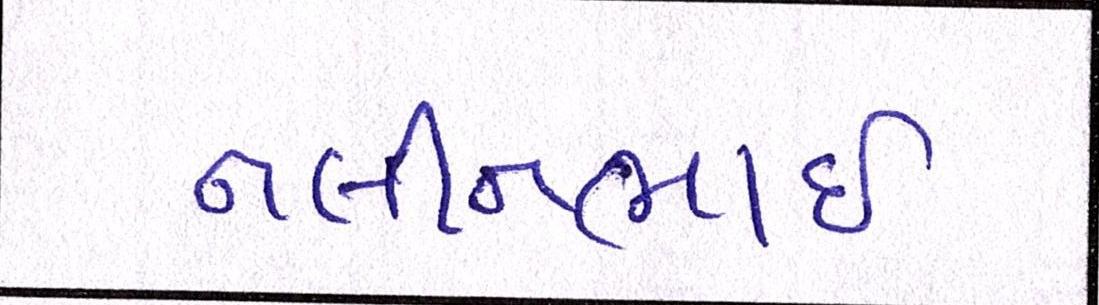 નલીનભાઈ